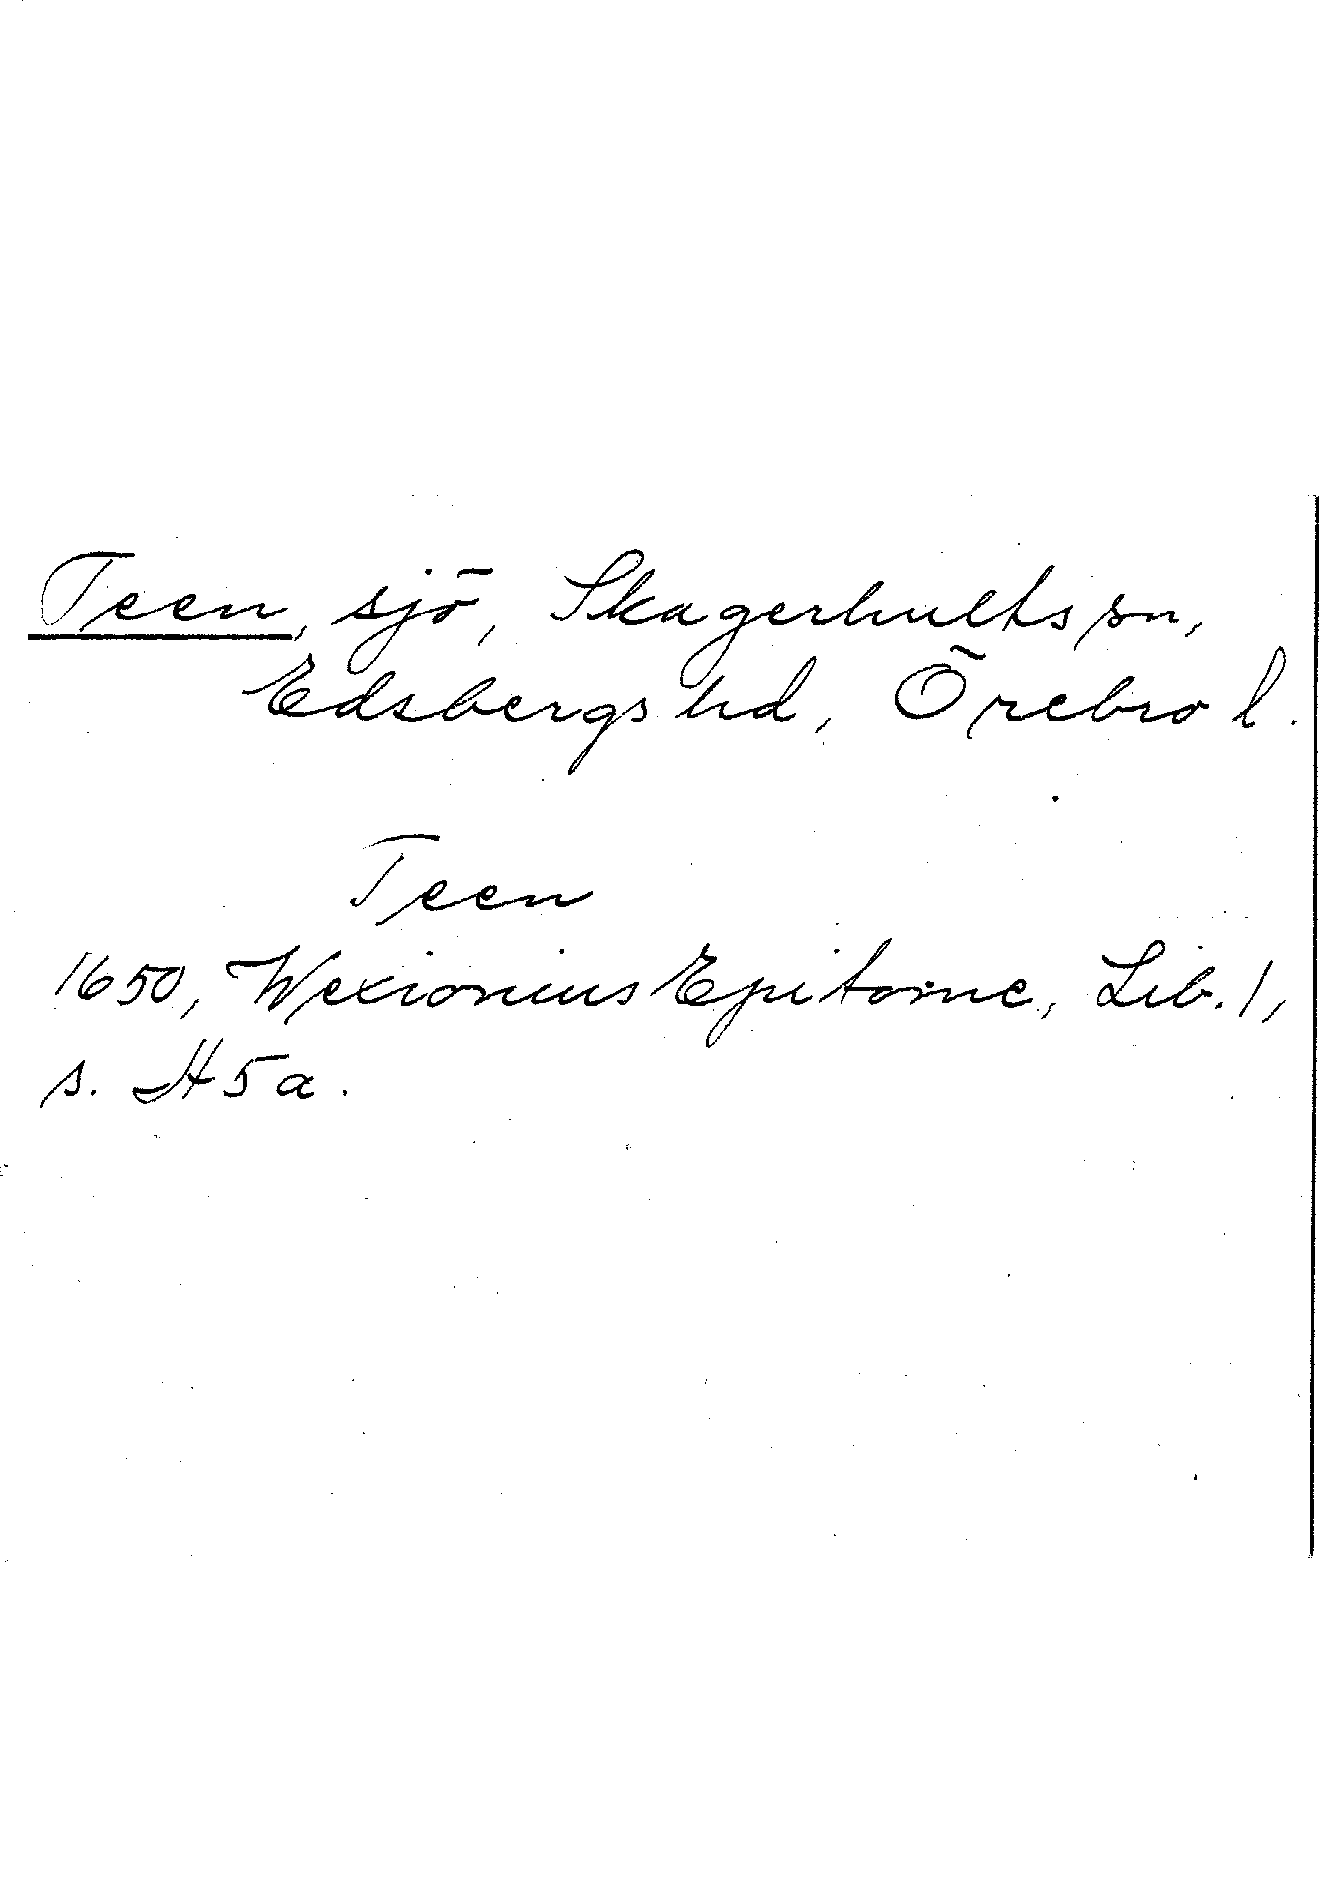 Teen, sjö, Skagerhults sn,
Edsbergs hd, Örebro l.
Teen
1650, Wexionius Epitome, Lib. 1,
s. H5a.